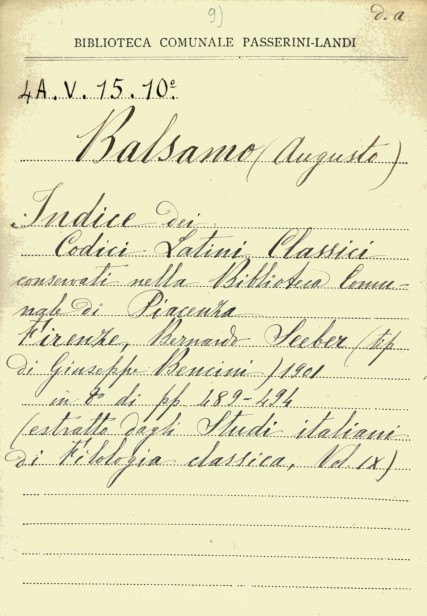 9)
d. a
BIBLIOTECA COMUNALE PASSERINI-LANDI
4A. V. 15. 10º
Balsamo (Augusto)
Indice dei
Codici Latini Classici
conservati nella Biblioteca Comu-
nale di Piacenza
Firenze, Bernardo Seeber (tip
di Giuseppe Bencini) 1901
in 8º di pp 489-494
(estratto dagli Studi italiani
di Filologia classica, Vol. IX)